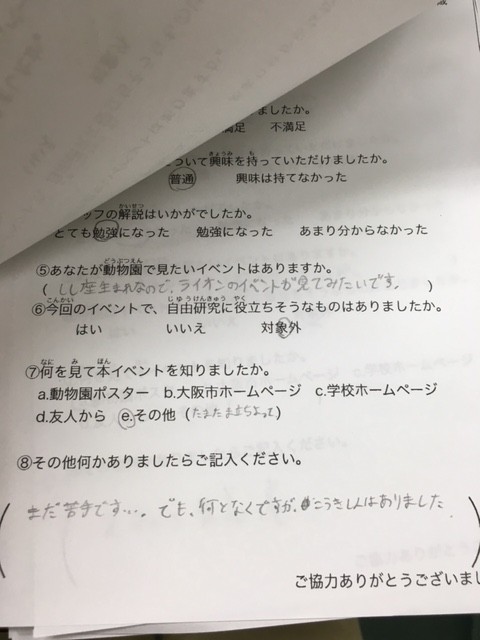 ましたか。
満足 不満足
ついて興味を持っていただけましたか。
普通 興味は持てなかった
ッフの解説はいかがでしたか。
とても勉強になった 勉強になった あまり分からなかった
⑤あなたが動物園で見たいイベントはありますか。
(しし座生まれなので、ライオンのイベントが見てみたいです。)
⑥今回のイベントで、自由研究に役立ちそうなものはありましたか。
はい いいえ 対象外
⑦何を見て本イベントを知りましたか。
a.動物園ポスター b.大阪市ホームページ c.学校ホームページ
d.友人から e.その他(たまたま立ちよって)
⑧その他何かありましたらご記入ください。
まだ苦手です…。でも、何となくですが、こうきしんはありました
ご協力ありがとうございまし